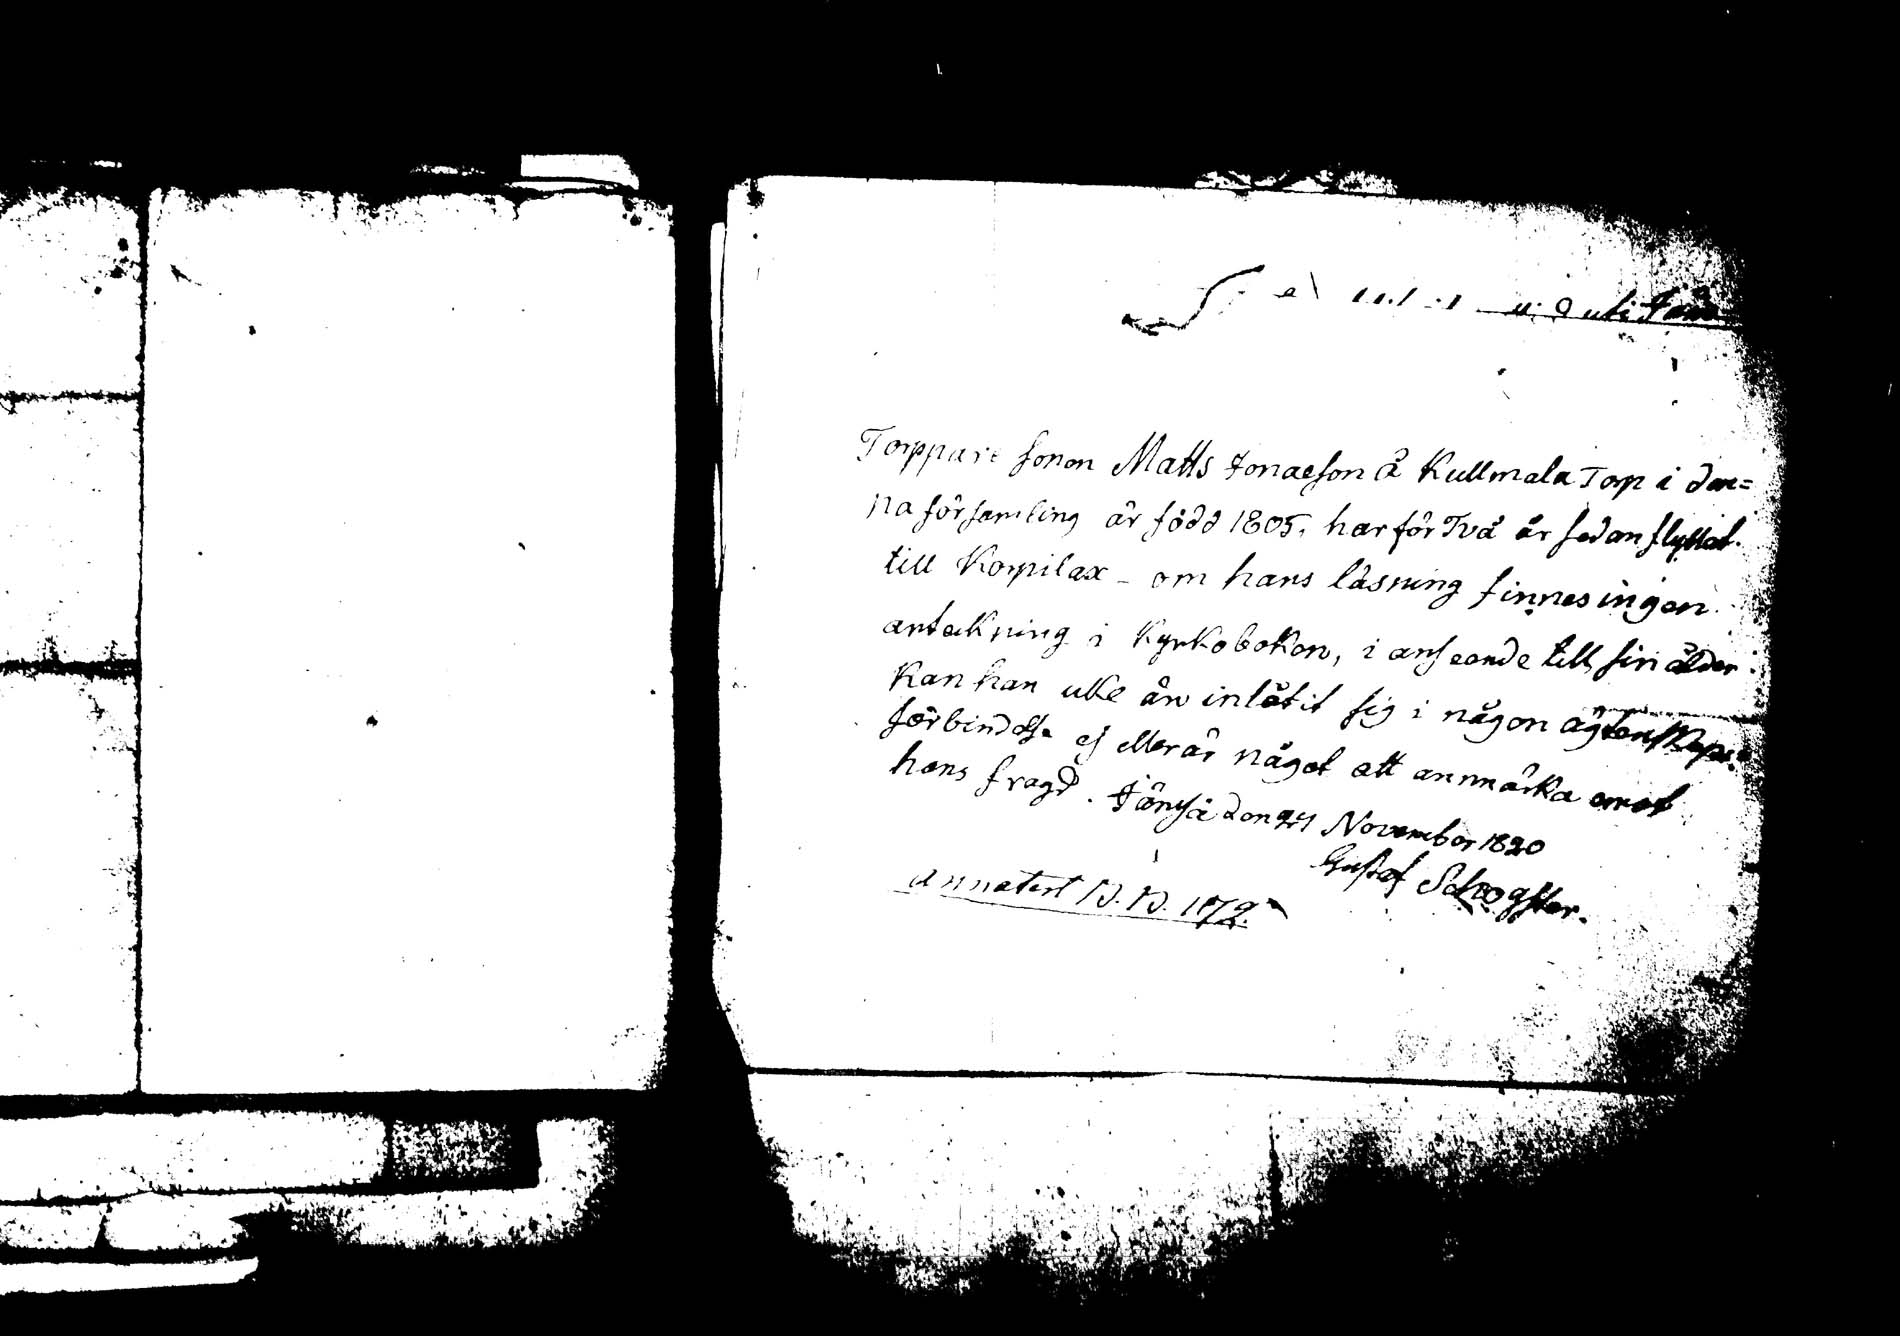 Torppare sonen Matts Jonaeson å Kullmala Torp i den=
na församling är född 1805, har för Två år sedan flyttat
till Korpilax - om hans läsning finnes ingen
anteckning i Kyrkoboken, i anseende till sin ålder
kan han icke än inlåtit sig i någon ägtenskaps
förbindelse ej eller är något att anmärka emot
hans fragd. Jämsä den 24 November 1820
Gustaf
Annoterat